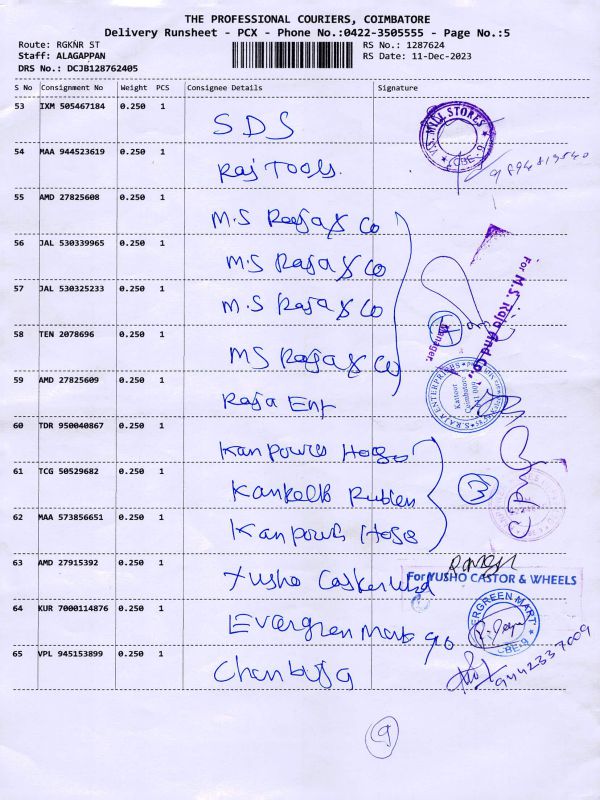 THE PROFESSIONAL COURIERS, COIMBATORE
Delivery Runsheet - PCX - Phone No.:0422-3505555 - Page No.:5
Route: RGKNR ST RS No.: 1287624
Staff: ALAGAPPAN RS Date: 11-Dec-2023
DRS No.: DCJB128762405
S No Consignment No Weight PCS Consignee Details Signature
53 IXM 505467184 0.250 1 SDS
V.S. MILL STORES ★ CBE-9 ★
54 MAA 944523619 0.250 1 Raj Tools.
55 AMD 27825608 0.250 1 M.S Raja & Co
56 JAL 530339965 0.250 1 M.S Raja & Co
57 JAL 530325233 0.250 1 M.S Raja & Co
For M.S. Raja And Co.,
Manager.
58 TEN 2078696 0.250 1 MS Raja & Co
4
59 AMD 27825609 0.250 1 Raja Ent
S.RAJA ENTERPRISES
Coimbatore
641 009
60 TDR 950040867 0.250 1 Kanpowr Hose
61 TCG 50529682 0.250 1 Rubber
3
62 MAA 573856651 0.250 1 Kanpowr Hose
63 AMD 27915392 0.250 1 Yusho
For YUSHO CASTOR & WHEELS
64 KUR 7000114876 0.250 1 Evergreen Mart
EVERGREEN MART
CBE-9
65 VPL 945153899 0.250 1
9442337009
9